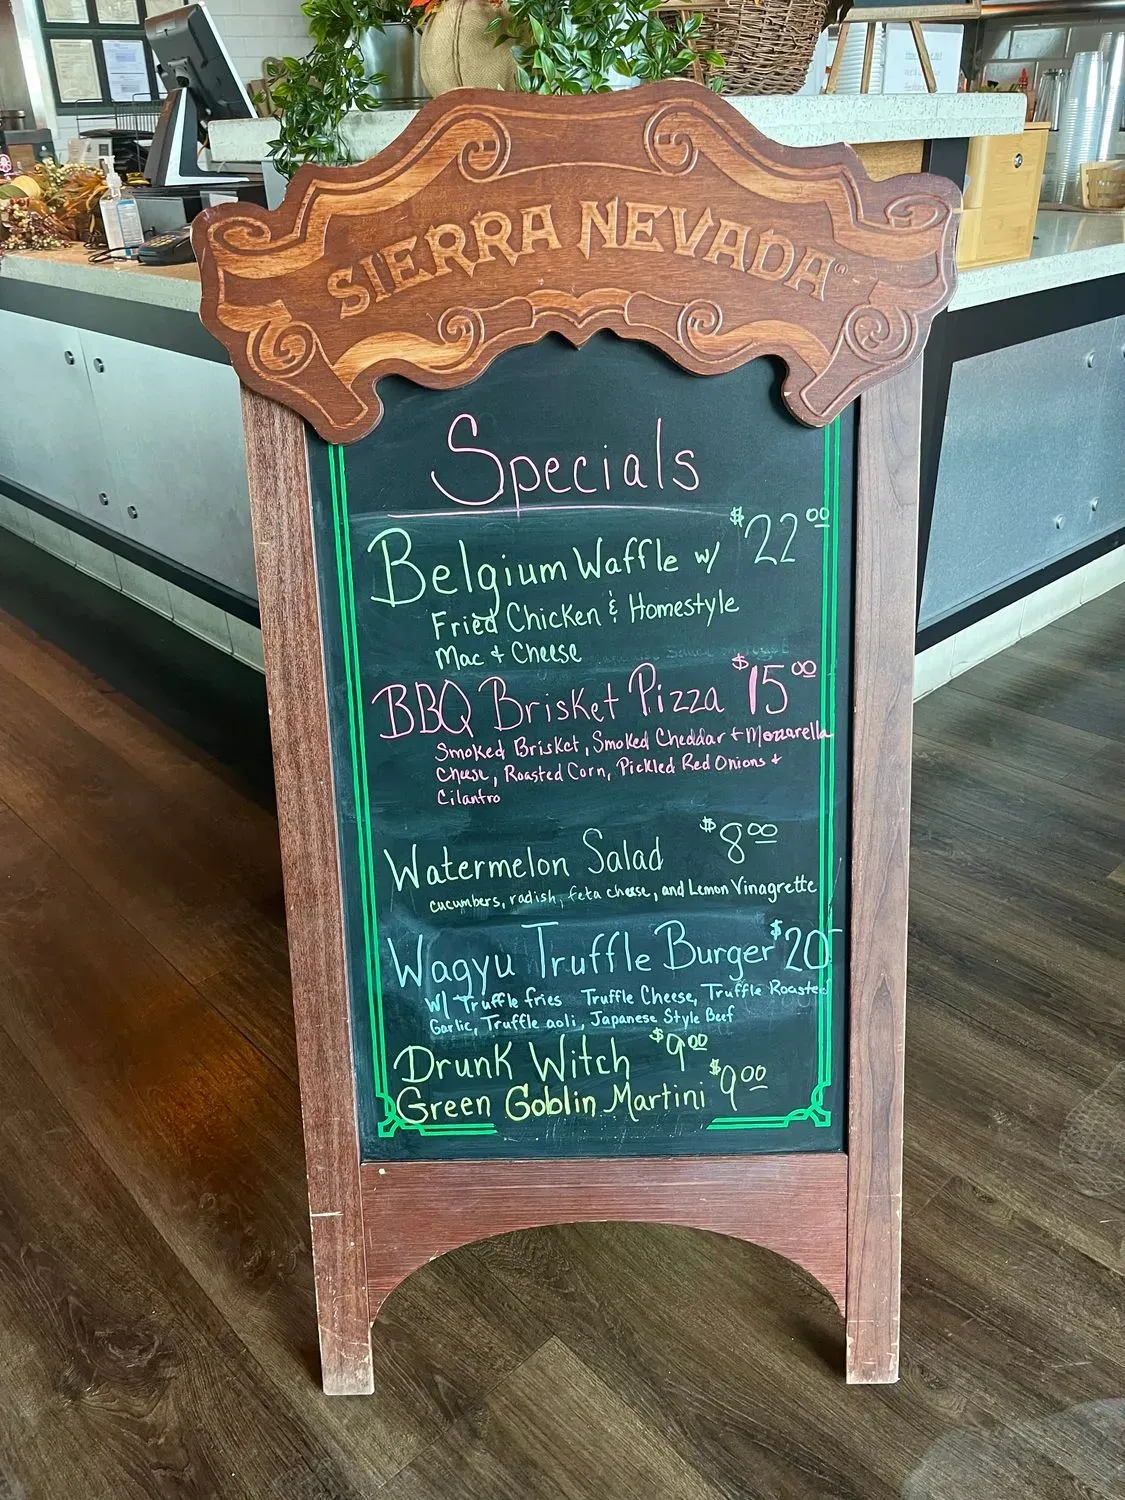 SIERRA NEVADA®
Specials
Belgium Waffle w/ $22.00
Fried Chicken & Homestyle
Mac + Cheese
BBQ Brisket Pizza $15.00
Smoked Brisket, Smoked Cheddar + Mozzarella
Cheese, Roasted Corn, Pickled Red Onions +
Cilantro
Watermelon Salad $8.00
cucumbers, radish, feta cheese, and Lemon Vinagrette
Wagyu Truffle Burger $20
w/ Truffle fries Truffle Cheese, Truffle Roasted
Garlic, Truffle aoli, Japanese Style Beef
Drunk Witch $9.00
Green Goblin Martini $9.00